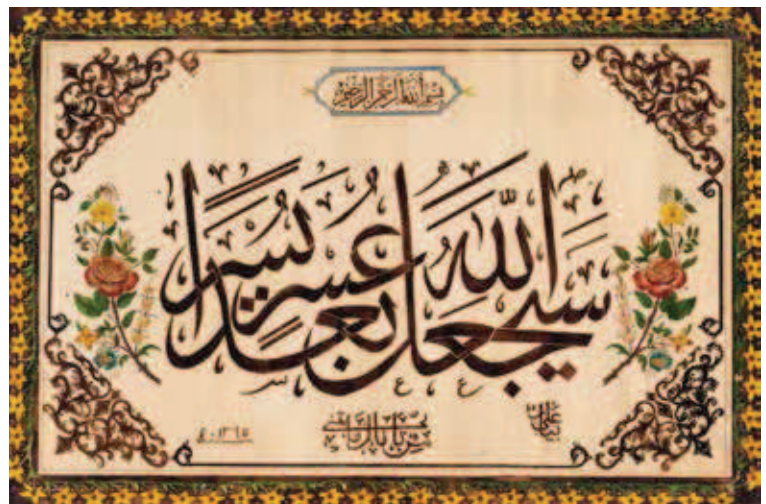 بسم الله الرحمن الرحيم
سيجعل الله بعد عسر يسرا
١٣٦٥